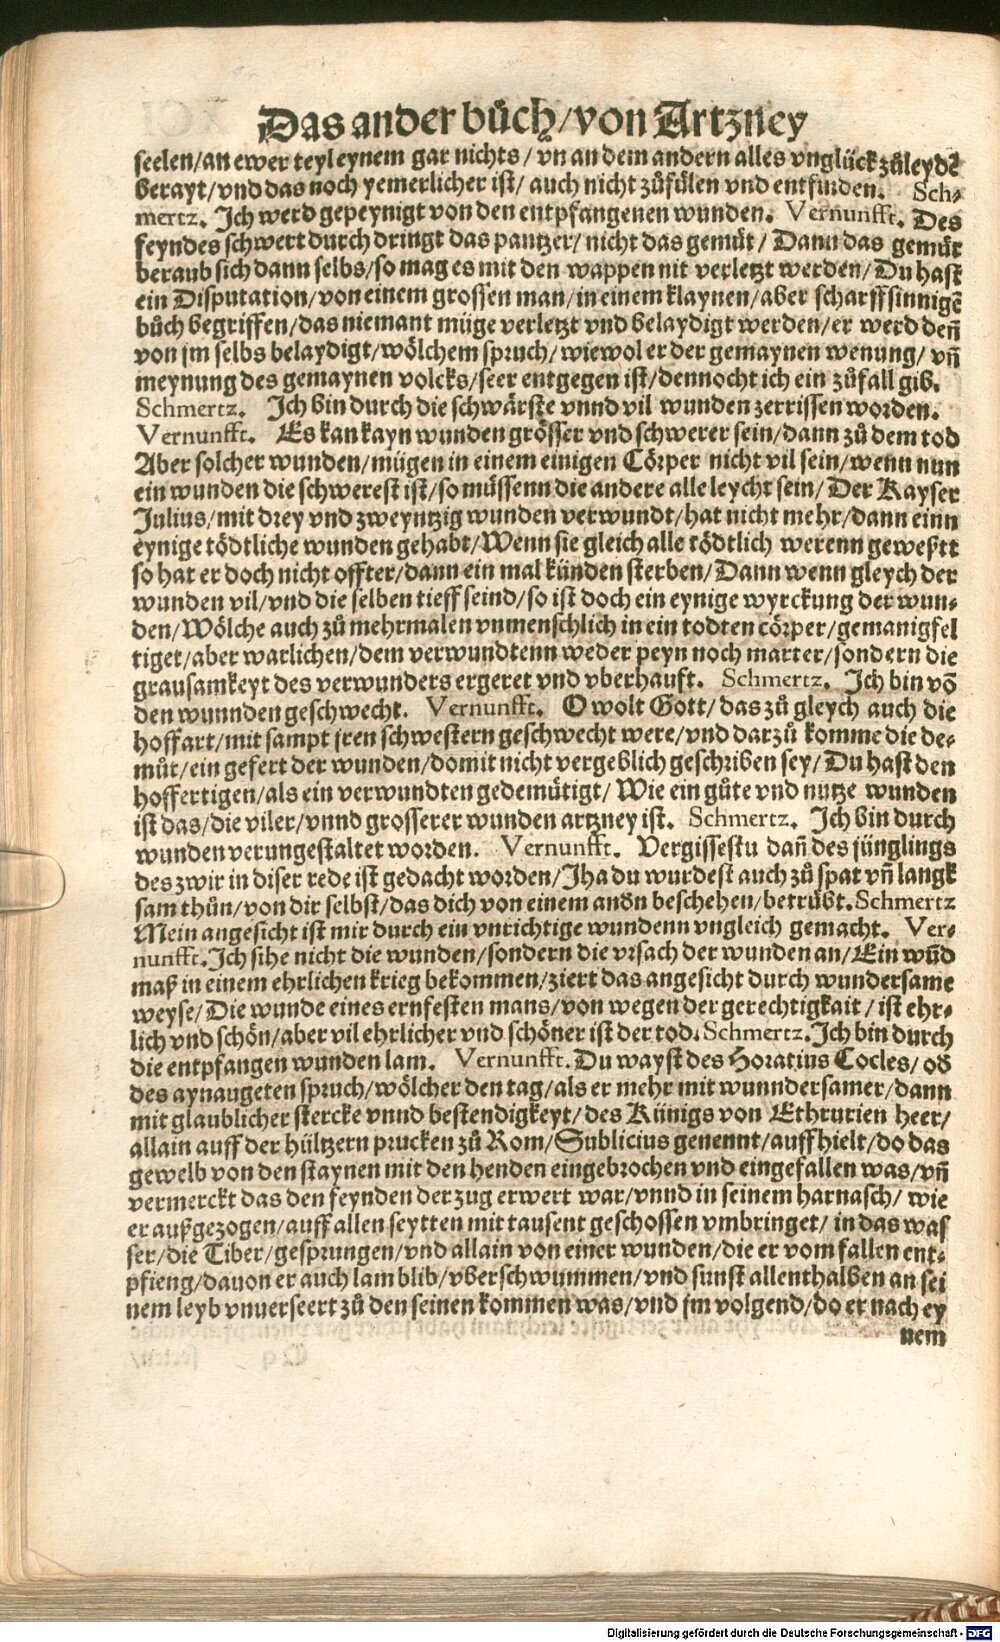 Das ander bůch/von Artzney
seelen/an ewer teyl eynem gar nichts/ vn an dem andern alles vnglück zůleydē
berayt/vnd das noch yemerlicher ist/ auch nicht zůfülen vnd entfinden. Sch-
mertz. Ich werd gepeynigt von den entpfangenen wunden. Vernunfft. Des
feyndes schwert durch dringt das pantzer/ nicht das gemüt/ Dann das gemüt
beraub sich dann selbs/so mag es mit den wappen nit verletzt werden/Du hast
ein Disputation/von einem grossen man/in einem klaynen/aber scharffsinnigē
bůch begriffen/das niemant müge verletzt vnd belaydigt werden/er werd deñ
von jm selbs belaydigt/wölchem spruch/wiewol er der gemaynen wenung/ vñ
meynung des gemaynen volcks/seer entgegen ist/dennocht ich ein zůfall gib.
Schmertz. Ich bin durch die schwärste vnnd vil wunden zerrissen worden.
Vernunfft. Es kan kayn wunden grösser vnd schwerer sein/dann zů dem tod
Aber solcher wunden/mügen in einem einigen Cörper nicht vil sein/wenn nun
ein wunden die schwerest ist/so müssenn die andere alle leycht sein/Der Kayser
Julius/mit drey vnd zweyntzig wunden verwundt/hat nicht mehr/dann einn
eynige tödtliche wunden gehabt/Wenn sie gleich alle tödtlich werenn geweßtt
so hat er doch nicht offter/dann ein mal künden sterben/Dann wenn gleych der
wunden vil/vnd die selben tieff seind/so ist doch ein eynige wyrckung der wun-
den/Wölche auch zů mehrmalen vnmenschlich in ein todten cörper/gemanigfel
tiget/aber warlichen/dem verwundtenn weder peyn noch marter/sondern die
grausamkeyt des verwunders ergeret vnd vberhauft. Schmertz. Ich bin vō
den wunnden geschwecht. Vernunfft. O wolt Gott/das zů gleych auch die
hoffart/mit sampt jren schwestern geschwecht were/vnd darzů komme die de-
můt/ein gefert der wunden/domit nicht vergeblich geschriben sey/Du hast den
hoffertigen/als ein verwundten gedemütigt/ Wie ein gůte vnd nutze wunden
ist das/die viler/vnnd grosserer wunden artzney ist. Schmertz. Ich bin durch
wunden verungestaltet worden. Vernunfft. Vergissestu dañ des jünglings
des zwir in diser rede ist gedacht worden/Iha du wurdest auch zů spat vñ langk
sam thůn/von dir selbst/das dich von einem andn beschehen/betrübt. Schmertz
Mein angesicht ist mir durch ein vntichtige wundenn vngleich gemacht. Ver-
nunfft. Ich sihe nicht die wunden/sondern die vrsach der wunden an/Ein wūd
maß in einem ehrlichen krieg bekommen/ziert das angesicht durch wundersame
weyse/Die wunde eines ernfesten mans/von wegen der gerechtigkait/ist ehr-
lich vnd schön/aber vil ehrlicher vnd schöner ist der tod. Schmertz. Ich bin durch
die entpfangen wunden lam. Vernunfft. Du wayst des Horatius Cocles/od
des aynaugeten spruch/wölcher den tag/als er mehr mit wunndersamer/dann
mit glaublicher stercke vnnd bestendigkeyt/des Künigs von Ethrurien heer/
allain auff der hültzern prucken zů Rom/Sublicius genennt/auffhielt/do das
gewelb von den staynen mit den henden eingebrochen vnd eingefallen was/vñ
vermerckt das den feynden der zug erwert war/vnnd in seinem harnasch/ wie
er außgezogen/auff allen seytten mit tausent geschossen vmbringet/ in das was
ser/die Tiber/gesprungen/vnd allain von einer wunden/die er vom fallen ent-
pfieng/dauon er auch lam blib/vberschwummen/vnd sunst allenthalben an sei
nem leyb vnuerseert zů den seinen kommen was/vnd jm volgend/do er nach ey
nem
Digitalisierung gefördert durch die Deutsche Forschungsgemeinschaft - DFG